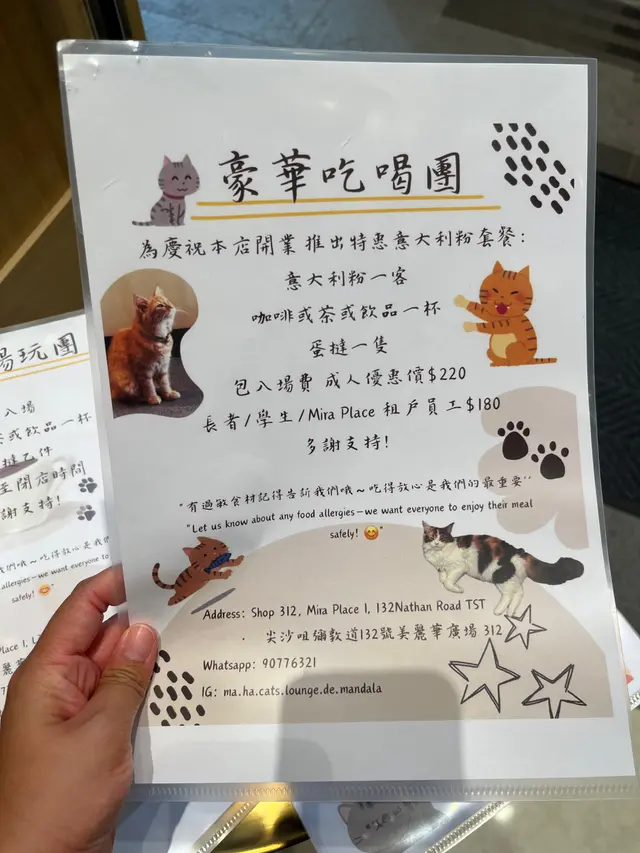 豪華吃喝團
為慶祝本店開業 推出特惠意大利粉套餐:
意大利粉一客
咖啡或茶或飲品一杯
蛋撻一隻
包入場費 成人優惠價$220
長者/學生/Mira Place 租戶員工$180
多謝支持!
"有過敏食材記得告訴我們哦~吃得放心是我們的最重要"
"Let us know about any food allergies—we want everyone to enjoy their meal
safely! 😊"
Address: Shop 312, Mira Place 1, 132Nathan Road TST
· 尖沙咀彌敦道132號美麗華廣場 312
Whatsapp: 90776321
IG: ma.ha.cats.lounge.de.mandala
玩團
入場
或飲品一杯
至閉店時間
謝支持!
們哦~吃得放心是我們
allergies—we want everyone to
safely! 😊"